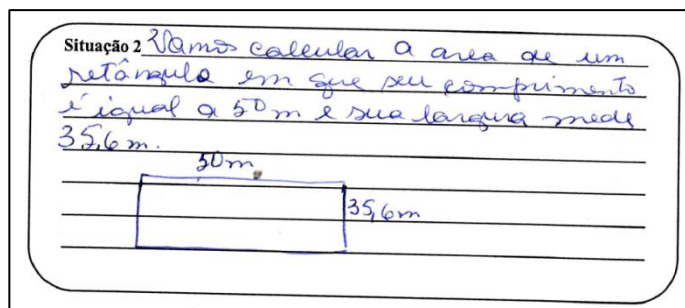 Situação 2 Vamos calcular a area de um
retângulo em que seu comprimento
é igual a 50m e sua largura mede
35,6m.
50m
35,6m